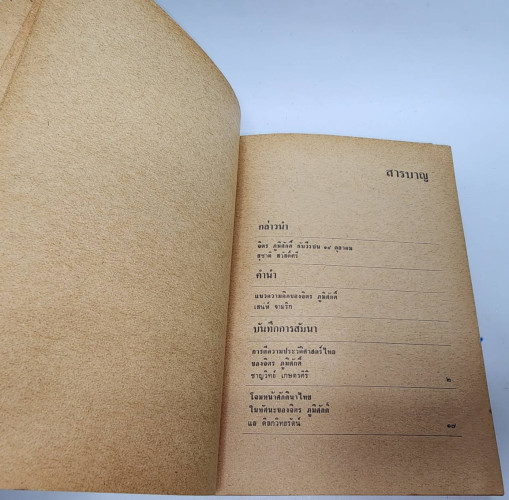 สารบาญ
กล่าวนำ
จิตร ภูมิศักดิ์ กับวีรชน ๑๔ ตุลาคม
สุชาติ สวัสดิ์ศรี
คำนำ
แนวความคิดของจิตร ภูมิศักดิ์
เสน่ห์ จามริก
บันทึกการสัมนา
การตีความประวัติศาสตร์ไทย
ของจิตร ภูมิศักดิ์
ชาญวิทย์ เกษตรศิริ ๒
โฉมหน้าศักดินาไทย
ในทัศนะของจิตร ภูมิศักดิ์
แล ดิลกวิทยรัตน์ ๑๗